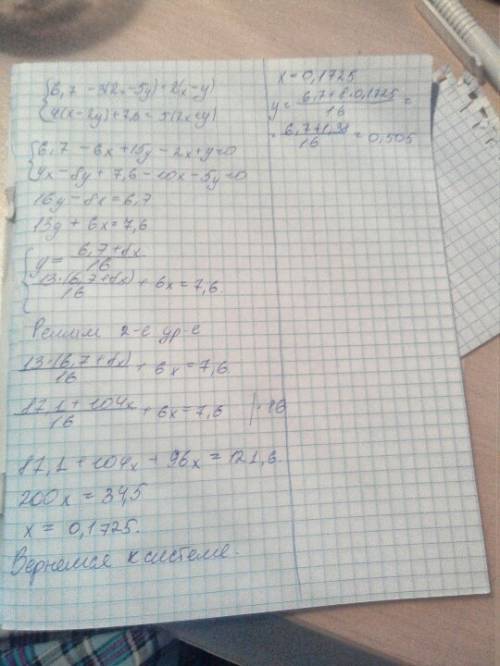 {6,7 - 3(2x-5y) = 2(x-y)
{4(x-2y)+7,6 = 5(2x+y)
{6,7 - 6x + 15y - 2x + y = 0
{4x - 8y + 7,6 - 10x - 5y = 0
16y - 8x = 6,7
13y + 6x = 7,6
{y = (6,7+8x)/16
{13·(6,7+8x)/16 + 6x = 7,6
Решим 2-е ур-е
13·(6,7+8x)/16 + 6x = 7,6
(87,1 + 104x)/16 + 6x = 7,6 |·16
87,1 + 104x + 96x = 121,6
200x = 34,5
x = 0,1725.
Вернемся к системе.
x = 0,1725
y = (6,7+8·0,1725)/16 =
= (6,7+1,38)/16 = 0,505